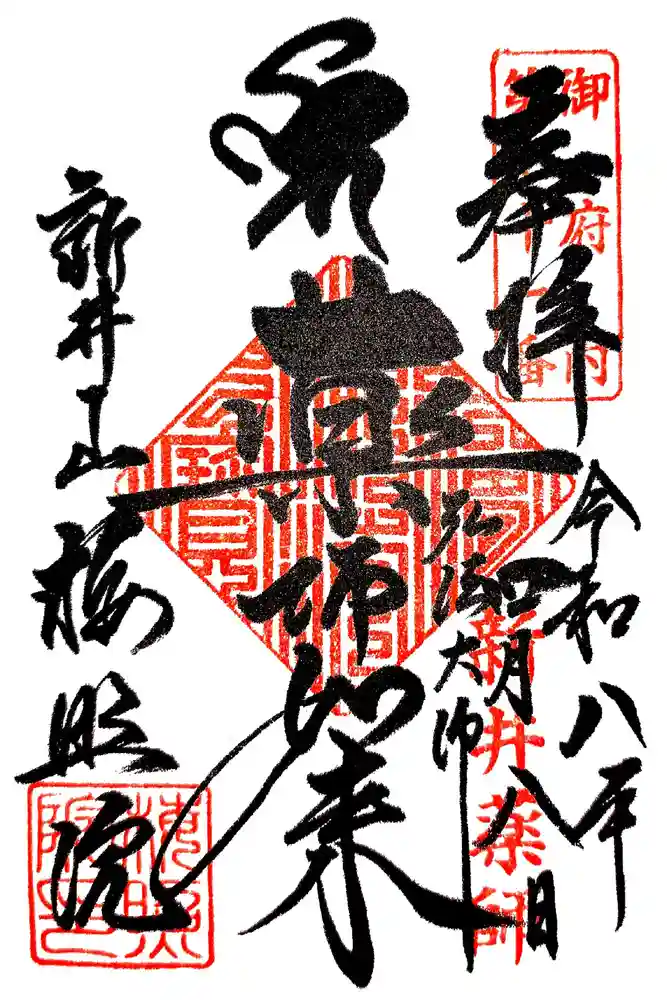 御府内
第七十一番
奉拝
令和八年
四月八日
新井薬師
弘法大師
薬師如来
新井山
梅照院